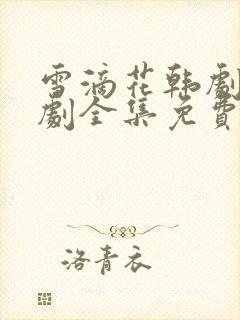 雪滴花韩剧
剧全集免费
洛青衣